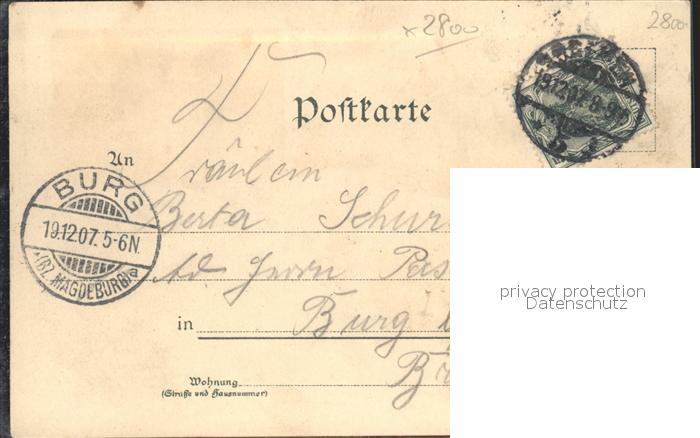 x2800
2800
Postkarte
19.12.07. 8-9
An
Fräulein
Berta Schur
BURG
19.12.07. 5-6N.
*(BZ. MAGDEBURG)a
Ad. Herrn Pas
privacy protection
Datenschutz
in Burg b
Wohnung
(Straße und Hausnummer)